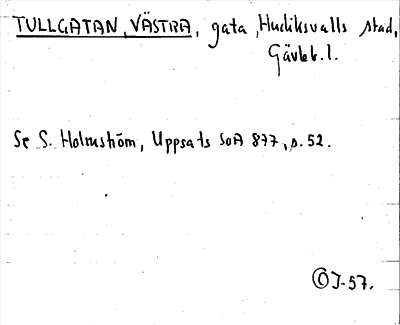 TULLGATAN, VÄSTRA, gata, Hudiksvalls stad,
Gävleb. l.
Se S. Holmström, Uppsats SOA 877, s. 52.
© J-57.